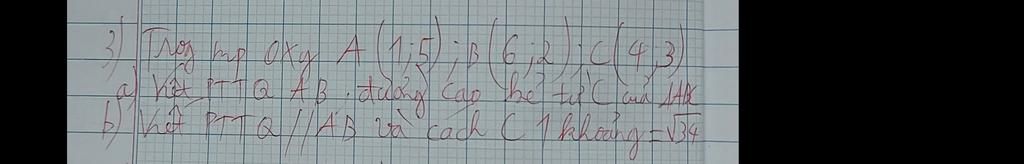 3) Trog mp Oxy A(1;5); B(6;2); C(4;3)
a) Viết PTTQ AB. đường cao kẻ từ C của ΔABC
b) Viết PTTQ // AB và cách C 1 khoảng = √34